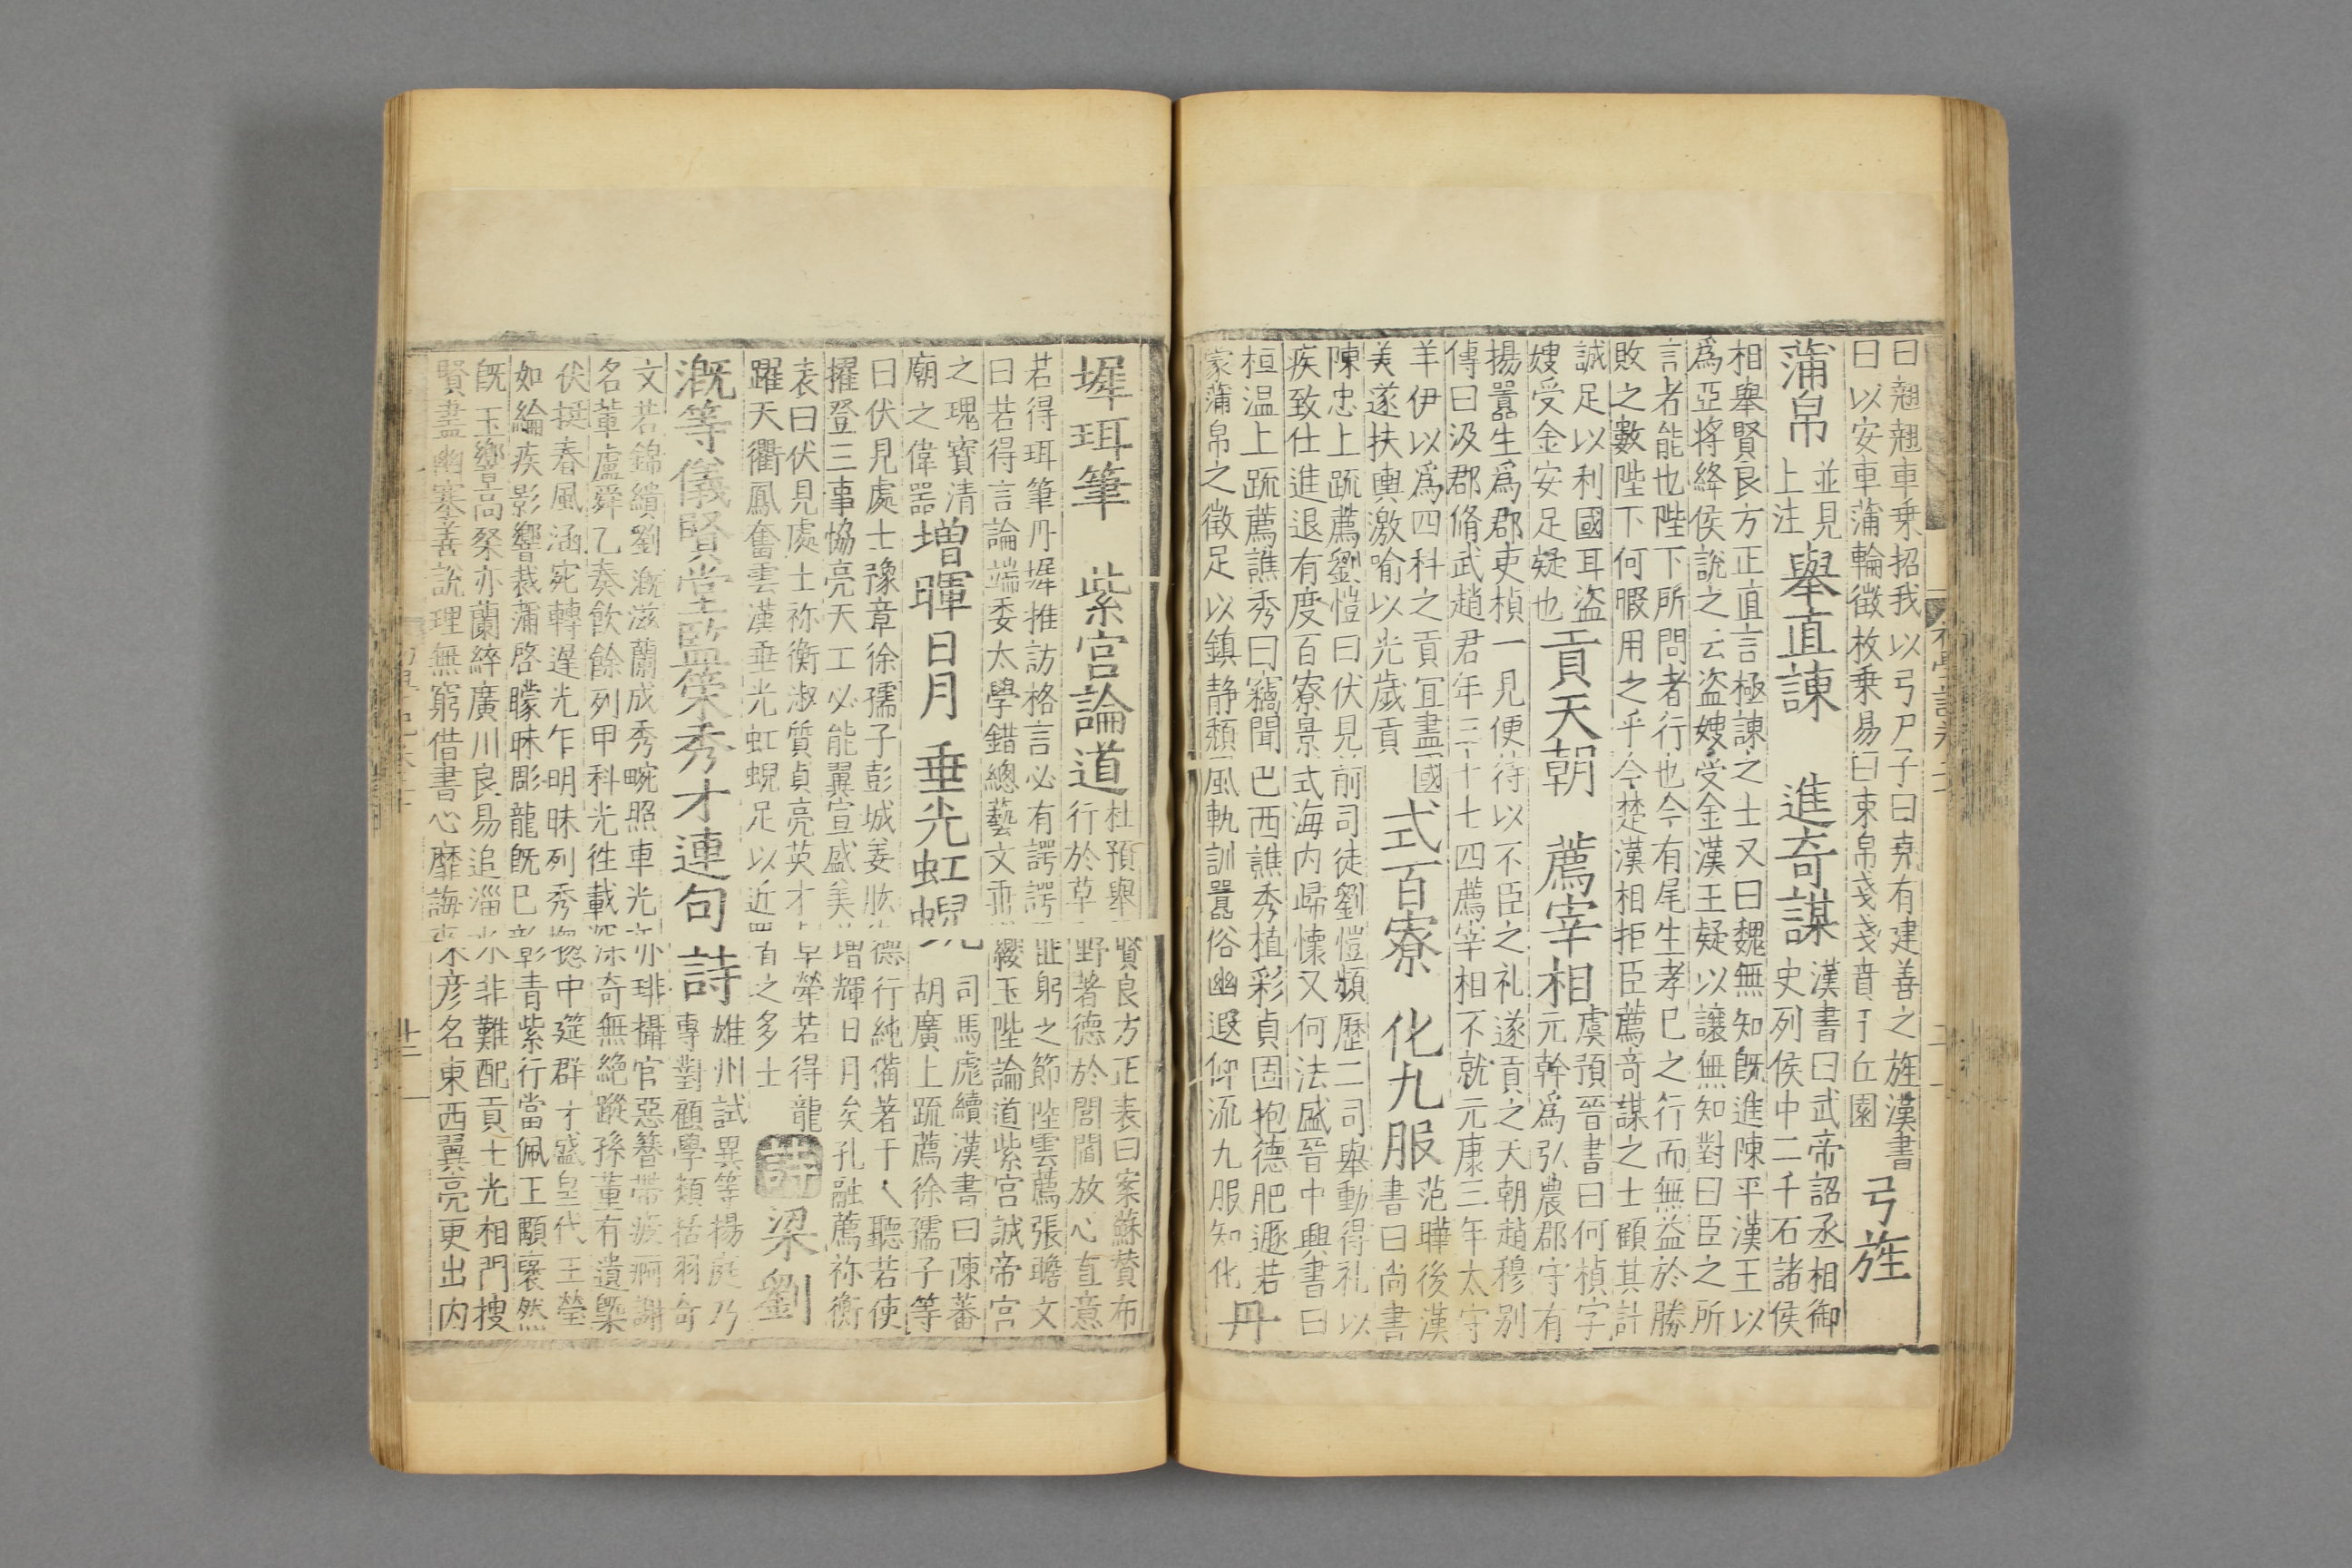 曰翹翹車乗招我以弓尸子曰堯有建善之旌漢書
曰以安車蒲輪徵枚乗易曰束帛戔戔賁于丘園
弓旌
蒲帛
並見
上注
舉直諫　進奇謀
漢書曰武帝詔丞相御
史列侯中二千石諸侯
相舉賢良方正直言極諫之士又曰魏無知旣進陳平漢王以
為亞將絳侯說之云盗嫂受金漢王疑以讓無知對曰臣之所
言者能也陛下所問者行也今有尾生孝巳之行而無益於勝
敗之數陛下何暇用之乎今楚漢相拒臣薦竒謀之士顧其計
誠足以利國耳盗
嫂受金安足疑也
貢天朝　薦宰相
虞預晉書曰何楨字
元幹為弘農郡守有
揚囂生為郡吏楨一見便待以不臣之礼遂貢之天朝趙穆别
傳曰汲郡脩武趙君年三十七四薦宰相不就元康三年太守
羊伊以為四科之貢宜盡國
美遂扶輿激喻以光歲貢
式百寮　化九服
范曄後漢
書曰尚書
陳忠上䟽薦劉愷曰伏見前司徒劉愷頻歷二司舉動得礼以
疾致仕進退有度百寮景式海内歸懷又何法盛晉中興書曰
桓温上䟽薦譙秀曰竊聞巴西譙秀植彩貞固抱德肥遯若
蒙蒲帛之徵足以鎮静頹風軌訓囂俗幽遐仰流九服知化
丹
墀珥筆　紫宫論道
杜預舉賢良方正表曰案蘇贊布
行於草野著德於閭閻放心直意
若得珥筆丹墀推訪格言必有諤諤匪躬之節陸雲薦張瞻文
曰若得言論端委太學錯總藝文垂纓玉陛論道紫宫誠帝宫
之瑰寶清
廟之偉噐
増暉日月　垂光虹蜺
司馬彪續漢書曰陳蕃
胡廣上䟽薦徐孺子等
曰伏見處士豫章徐孺子彭城姜肱德行純備著于人聽若使
擢登三事協亮天工必能翼宣盛美増輝日月矣孔融薦祢衡
表曰伏見處士祢衡淑質貞亮英才卓犖若得龍
躍天衢鳳奮雲漢垂光虹蜺足以近署之多士
詩
梁劉
漑等儀賢堂監策秀才連句詩
雄州試異等揚庭乃
專對顧學類括羽奇
文若錦繢劉漑滋蘭成秀畹照車光亦琲攝官惡簪帶疲痾謝
名華盧舜乙奏飲餘列甲科光徃載深奇無絶蹤孫董有遺槩
伏挺春風涵宛轉遲光乍明昧列秀摠中筵群才盛皇代王瑩
如綸疾影響裁蒲啓矇昧彫龍旣已彰青紫行當佩王顒褎然
旣玉響高槩亦蘭綷廣川良易追淄水非難配貢士光相門搜
賢盡幽塞善說理無窮借書心靡誨來彦名東西翼亮更出内